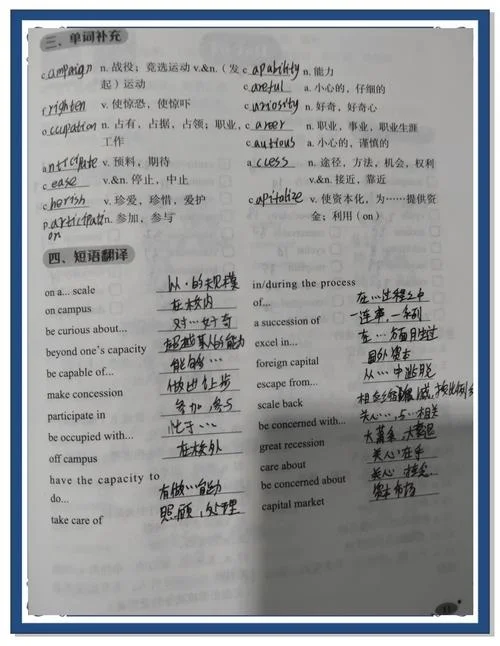 三、单词补充
campaign n. 战役；竞选运动 v.&n.（发 capability n. 能力
起）运动 careful a. 小心的，仔细的
frighten v. 使惊恐，使惊吓 curiosity n. 好奇，好奇心
occupation n. 占有，占据，占领；职业， career n. 职业，事业，职业生涯
工作 cautious a. 小心的，谨慎的
anticipate v. 预料，期待 access n. 途径，方法，机会，权利
cease v.&n. 停止，中止 v.&n. 接近，靠近
cherish v. 珍爱，珍惜，爱护 capitalize v. 使资本化，为……提供资
participation n. 参加，参与 金；利用（on）
四、短语翻译
on a... scale 以…的规模 in/during the process
on campus 在校内 of... 在…过程之中
be curious about... 对…好奇 a succession of 一连串，一系列
beyond one's capacity 超越某人的能力 excel in... 在…方面胜过
be capable of... 能够… foreign capital 国外资本
make concession 做出让步 escape from... 从…中逃脱
participate in 参加，参与 scale back 相应缩减，按比例
be occupied with... 忙于… be concerned with... 关心…，与…相关
off campus 在校外 great recession 大萧条，大衰退
have the capacity to care about 关心，在乎
do... 有做…能力 be concerned about 关心，挂念…
take care of 照顾，处理 capital market 资本市场